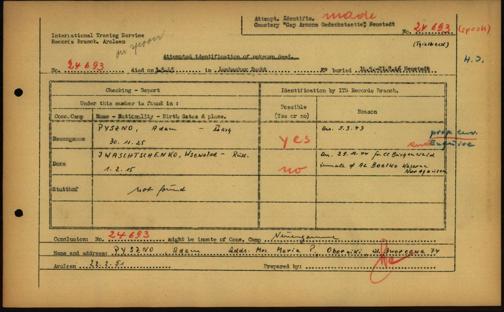 International Tracing Service
Records Branch, Arolsen
Attempt. Identifie. made
Cemetery "Cap Arcona Gedenkstaette", Neustadt
No. 24 693
Attempted identification of unknown dead.
No. 24693 died on 3.5.45 in Luebecker Bucht buried Neustadt
Checking - Report
Identification by ITS Records Branch.
Under this number is found in:
Possible (Yes or no)
Reason
Conc.Camp
Name - Nationality - Birth dates & place.
Neuengamme
PYSZNO, Adam -
30.11.25
yes
Arr. 5.3.43
Enquire
Dora
IWASCHTSCHENKO, Wsewolod - Russ.
1.2.15
no
Arr. 29.11.44 fr. CC Buchenwald
inmate of AL BOELKE Kaserne
Nordhausen
Stutthof
not found
Conclusion: No. 24693 might be inmate of Conc. Camp Neuengamme
Name and address: PYSZNO Adam Addr. Mrs. Maria P.
Arolsen 22.2.51 Prepared by: